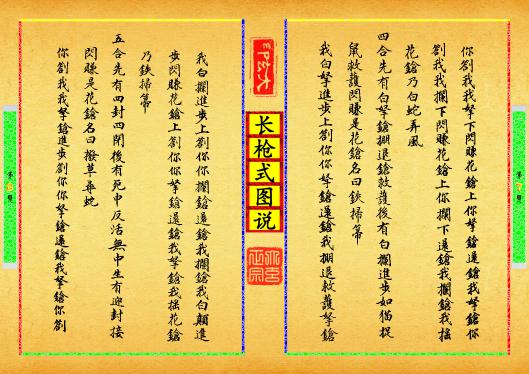 你劄我我拏下閃賺花鎗上你拏鎗還鎗我拏鎗你
劄我我攔下閃賺花鎗上你攔下還鎗我攔鎗我搖
花鎗乃白蛇弄風
四合先有白拏鎗掤退鎗救護後有白攔進步如猫捉
鼠救護閃賺是花鎗名曰鉄掃箒
我白拏進步上劄你你拏鎗還鎗我掤退救護拏鎗
长枪式图说
我白攔進步上劄你你攔鎗還鎗我攔鎗我白顛進
步閃賺花鎗上劄你你拏鎗還鎗我拏鎗我搖花鎗
乃鉄掃箒
五合先有四封四閉後有死中反活無中生有迎封接
閃賺是花鎗名曰撥草尋蛇
你劄我我拏鎗進步劄你你拏鎗還鎗我拏鎗你劄